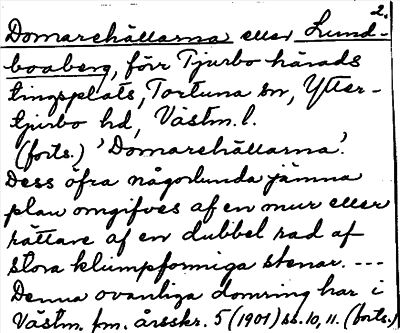 2.
Domarehällarna eller Lund-
boaberg, förr Tjurbo härads
tingsplats, Tortuna sn, Ytter-
tjurbo hd, Västm. l.
(forts.) 'Domarehällarna'.
Dess öfra någorlunda jämna
plan omgifves af en mur eller
rättare af en dubbel rad af
stora klumpformiga stenar. ---
Denna ovanliga domring har i
Västm. fm. årsskr. 5 (1901) ss. 10, 11. (forts.)